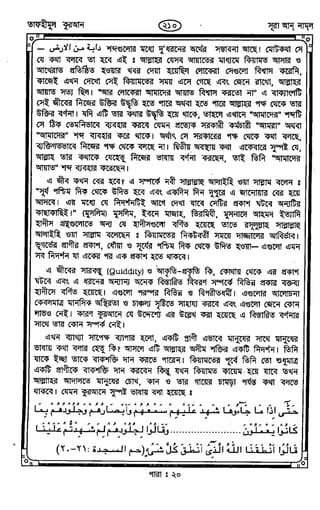 তাফহীমুল কুরআন
২১০
সূরা আন্ নামল
دابة من الارض — শব্দগুলোর মধ্যে দু'ধরনের অর্থের সম্ভাবনা আছে। মোটকথা সে
যে কথা বলবে তা হবে এই : আল্লাহর যেসব আয়াতের মাধ্যমে কিয়ামত আসার ও
আখেরাত প্রতিষ্ঠিত হওয়ার খবর দেয়া হয়েছিল লোকেরা সেগুলো বিশ্বাস করেনি,
কাজেই এখন দেখো সেই কিয়ামতের সময় এসে গেছে এবং জেনে রাখো, আল্লাহর
আয়াত সত্য ছিল। "আর লোকেরা আমাদের আয়াত বিশ্বাস করতো না" এ বাক্যাংশটি
সেই জীবের নিজের উক্তির উদ্ধৃতি হতে পারে অথবা হতে পারে আল্লাহর পক্ষ থেকে তার
উক্তির বর্ণনা। যদি এটি তার কথার উদ্ধৃতি হয়ে থাকে, তাহলে এখানে "আমাদের" শব্দটি
সে ঠিক তেমনিভাবে ব্যবহার করবে যেমন প্রত্যেক সরকারী কর্মচারী "আমরা" অথবা
"আমাদের" শব্দ ব্যবহার করে থাকে। অর্থাৎ সে সরকারের পক্ষ থেকে কথা বলছে,
ব্যক্তিগতভাবে নিজের পক্ষ থেকে কথা বলছে না। দ্বিতীয় অবস্থায় কথা একেবারে সুস্পষ্ট যে,
আল্লাহ তার কথাকে যেহেতু নিজের ভাষায় বর্ণনা করছেন, তাই তিনি "আমাদের
আয়াত" শব্দ ব্যবহার করেছেন।
এ জীব কখন বের হবে? এ সম্পর্কে নবী সাল্লাল্লাহু আলাইহি ওয়া সাল্লাম বলেন :
"সূর্য পশ্চিম দিক থেকে উদিত হবে এবং একদিন দিন দুপুরে এ জানোয়ার বের হয়ে
আসবে। এর মধ্যে যে নিদর্শনটিই আগে দেখা যাবে সেটির প্রকাশ ঘটবে অন্যটির
কাছাকাছিই।" (মুসলিম) মুসলিম, ইবনে মাজাহ, তিরমিযী, মুসনাদে আহমদ ইত্যাদি
হাদীস গ্রন্থগুলোতে অন্য যে হাদীসগুলো বর্ণিত হয়েছে তাতে রসূলুল্লাহ সাল্লাল্লাহু
আলাইহি ওয়া সাল্লাম বলেছেন : কিয়ামতের নিকটবর্তী সময়ে দাজ্জালের আবির্ভাব।
ভূগর্ভের প্রাণীর প্রকাশ, ধোঁয়া ও সূর্যের পশ্চিম দিক থেকে উদয় হওয়া—এগুলো এমন
সব নিদর্শন যা একের পর এক প্রকাশ হতে থাকবে।
এ জীবের সারবস্তু (Quiddity) ও আকৃতি-প্রকৃতি কি, কোথায় থেকে এর প্রকাশ
ঘটবে এবং এ ধরনের অন্যান্য অনেক বিস্তারিত বিবরণ সম্পর্কে বিভিন্ন প্রকার বক্তব্য
হাদীসে বর্ণিত হয়েছে। এগুলো পরস্পর বিভিন্ন ও বিপরীতধর্মী। এগুলোর আলোচনা
কেবলমাত্র মানসিক অস্থিরতা ও চাঞ্চল্য সৃষ্টিতে সাহায্য করবে এবং এগুলো জেনে কোন
লাভও নেই। কারণ কুরআনে যে উদ্দেশ্যে এর উল্লেখ করা হয়েছে এ বিস্তারিত বর্ণনার
সাথে তার কোন সম্পর্ক নেই।
এখন ব্যাখ্যা সাপেক্ষ ব্যাপার হলো, একটি প্রাণী এভাবে মানুষের সাথে মানুষের
ভাষায় কথা বলার হেতু কি? আসলে এটি আল্লাহর অসীম শক্তির একটি নিদর্শন। তিনি
যাকে ইচ্ছা তাকে বাকশক্তি দান করতে পারেন। কিয়ামতের পূর্বে তিনি তো শুধুমাত্র
একটি প্রাণীকে বাকশক্তি দান করবেন কিন্তু যখন কিয়ামত কায়েম হয়ে যাবে তখন
আল্লাহর আদালতে মানুষের চোখ, কান ও তার গায়ের চামড়া পর্যন্ত কথা বলতে
থাকবে। যেমন কুরআনে সুস্পষ্ট ভাষায় বলা হয়েছে :
حَتَّى إِذَا مَا جَاءُوهَا شَهِدَ عَلَيْهِمْ سَمْعُهُمْ وَأَبْصَارُهُمْ وَجُلُودُهُمْ بِمَا
كَانُوا يَعْمَلُونَ..........وَقَالُوا لِجُلُودِهِمْ لِمَ شَهِدْتُمْ عَلَيْنَا
قَالُوا أَنْطَقَنَا اللَّهُ الَّذِي أَنْطَقَ كُلَّ شَيْءٍ (حم السجدة :٢١-٢٠)
পারা : ২০